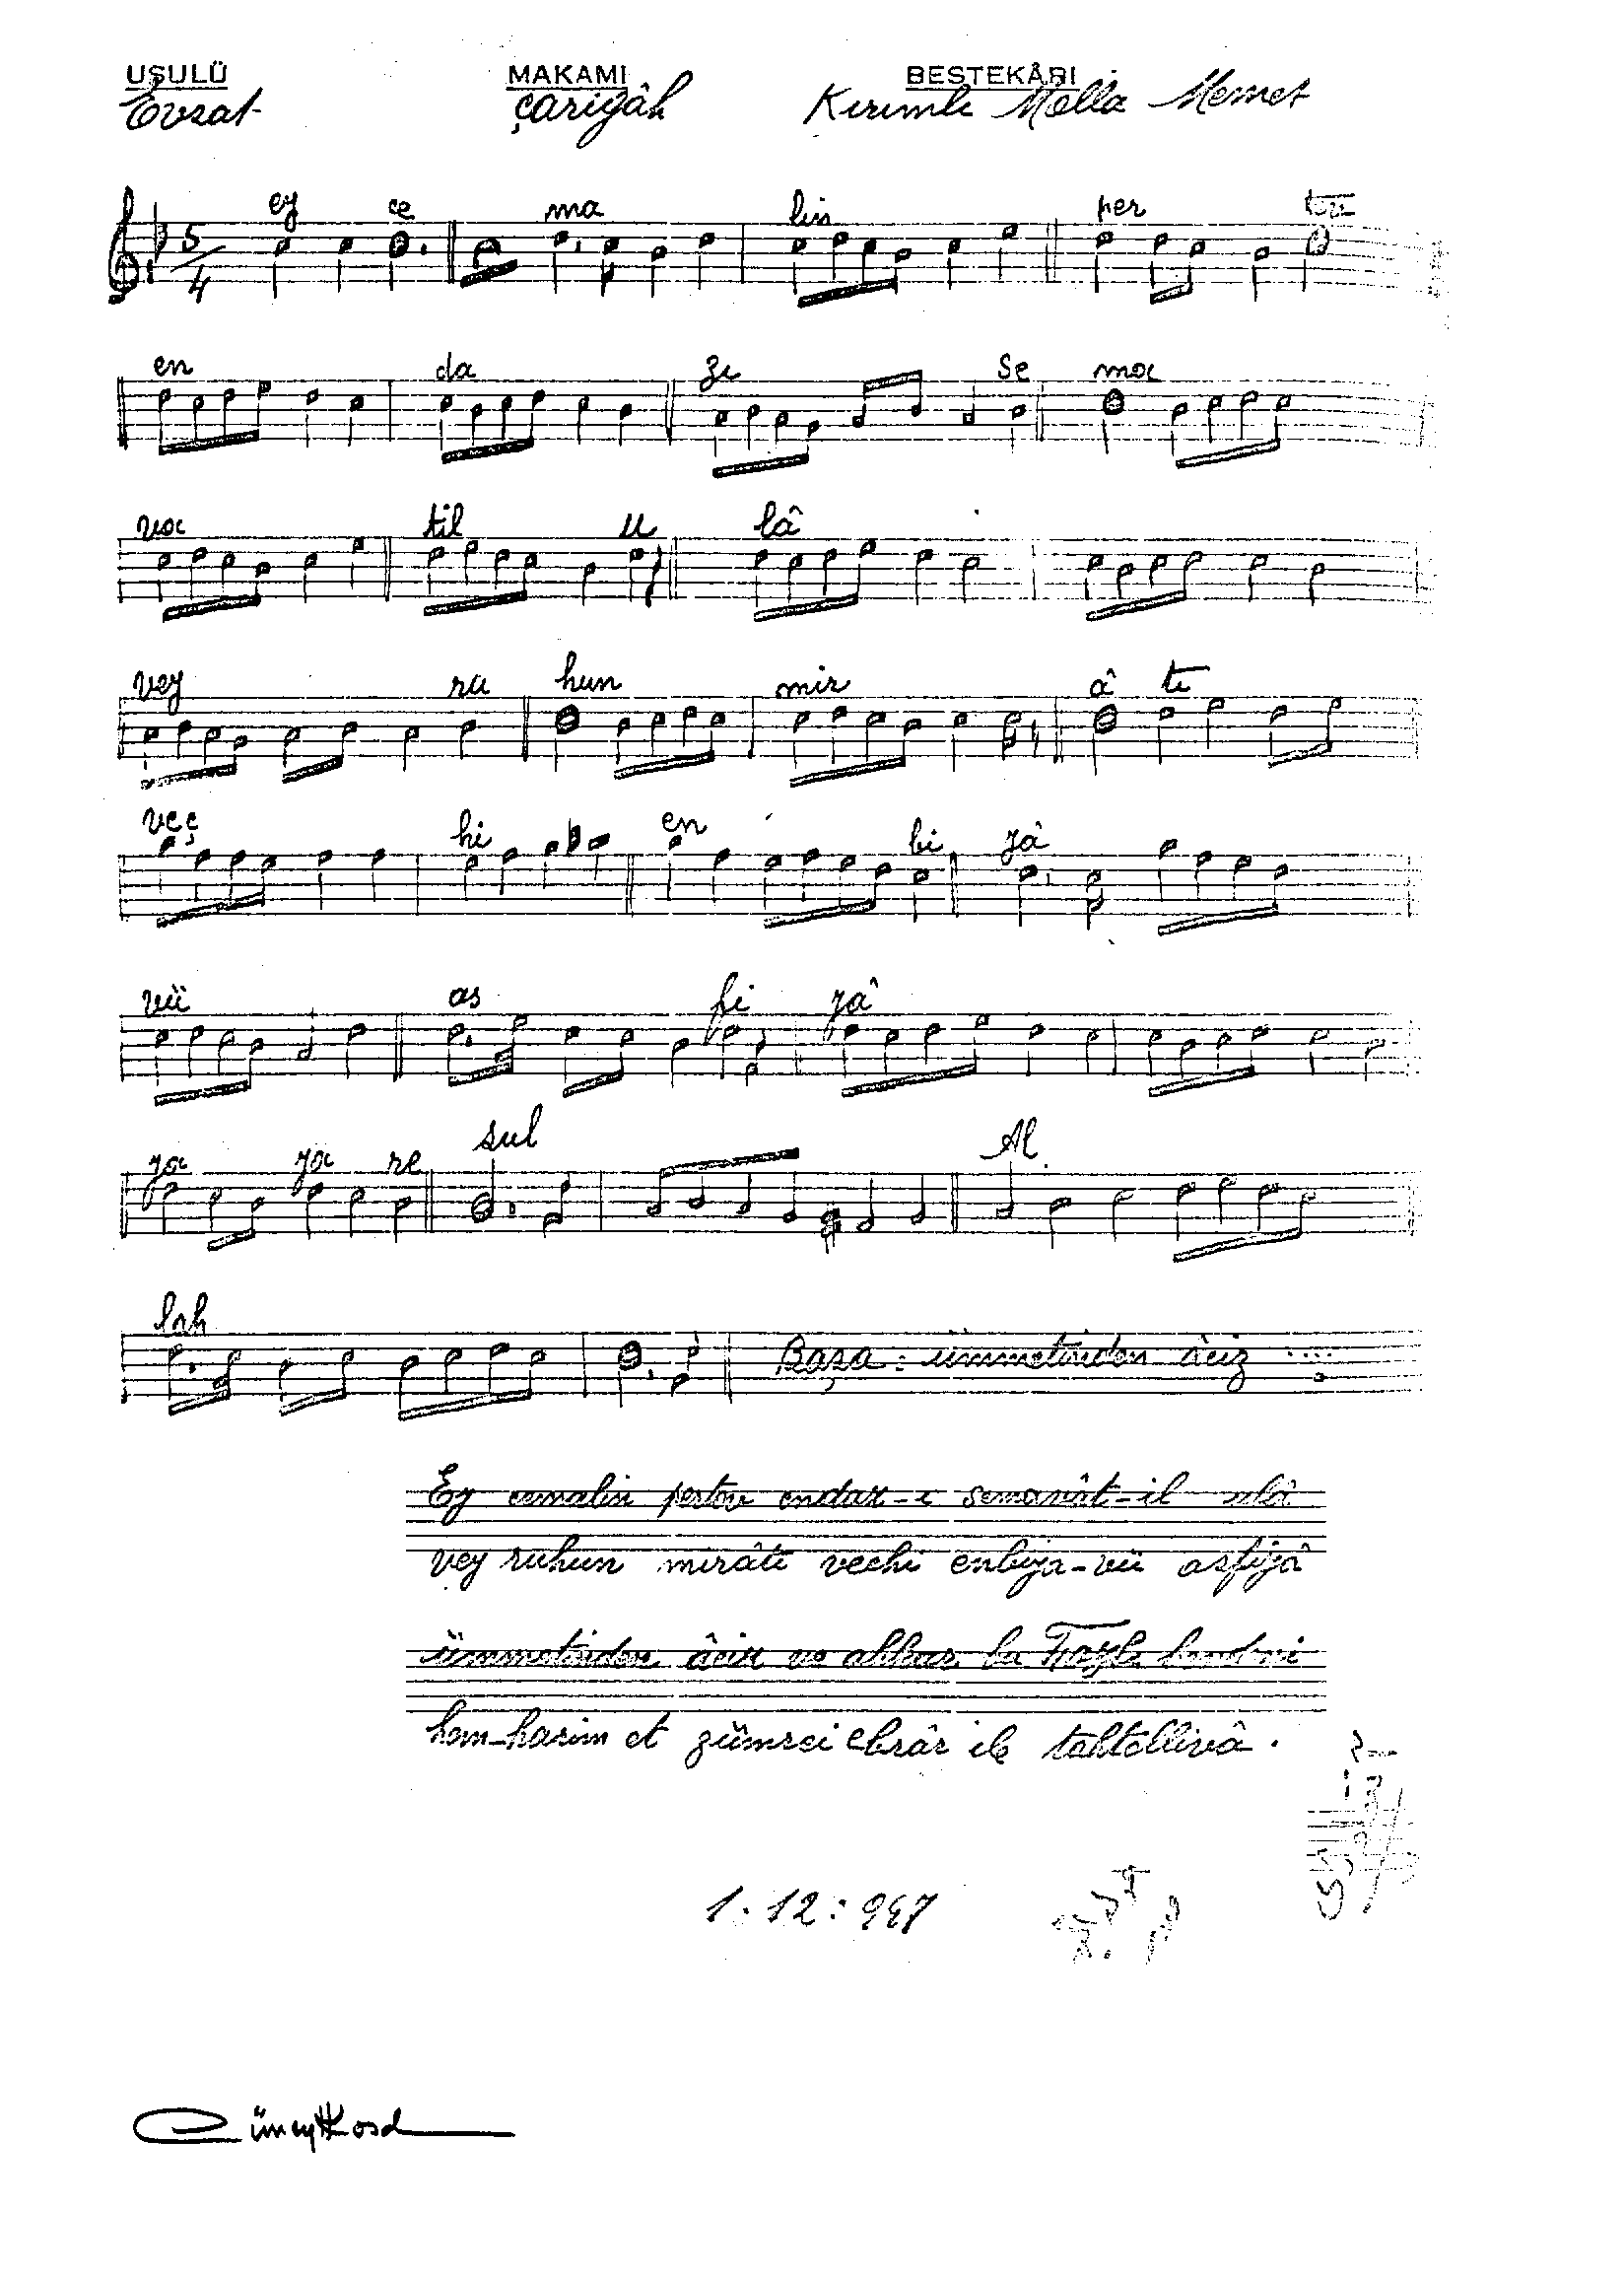 USULÜ MAKAMI BESTEKÂRI
Evsat Çarigâh Kırımlı Molla Memet
5/4
ey ce ma lin per tev
en da zi Se ma
va til u lâ
vey ru hun mir â ti
vec hi en bi yâ
vü as fi yâ
ya ya re sul Al
lah Başa: ümmetinden âciz ....
Ey cemalin pertev endaz-i semavât-il ulâ
vey ruhun mirâti vechi enbiya-vü asfiyâ
ümmetinden âciz ve ahkar bu
hem-harim et zümrei ebrâr ile tahtellivâ.
1.12:947